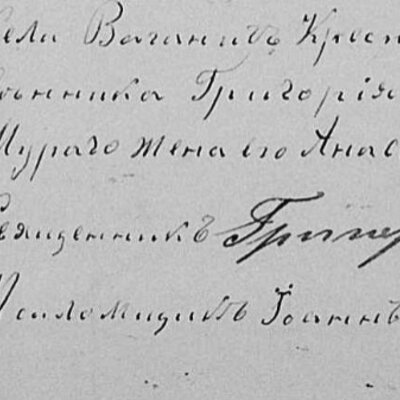 села Ваганичъ Крест
твенника Григорія
Мураго жена его Анас
Священникъ Григор
Псаломщикъ Іоаннъ